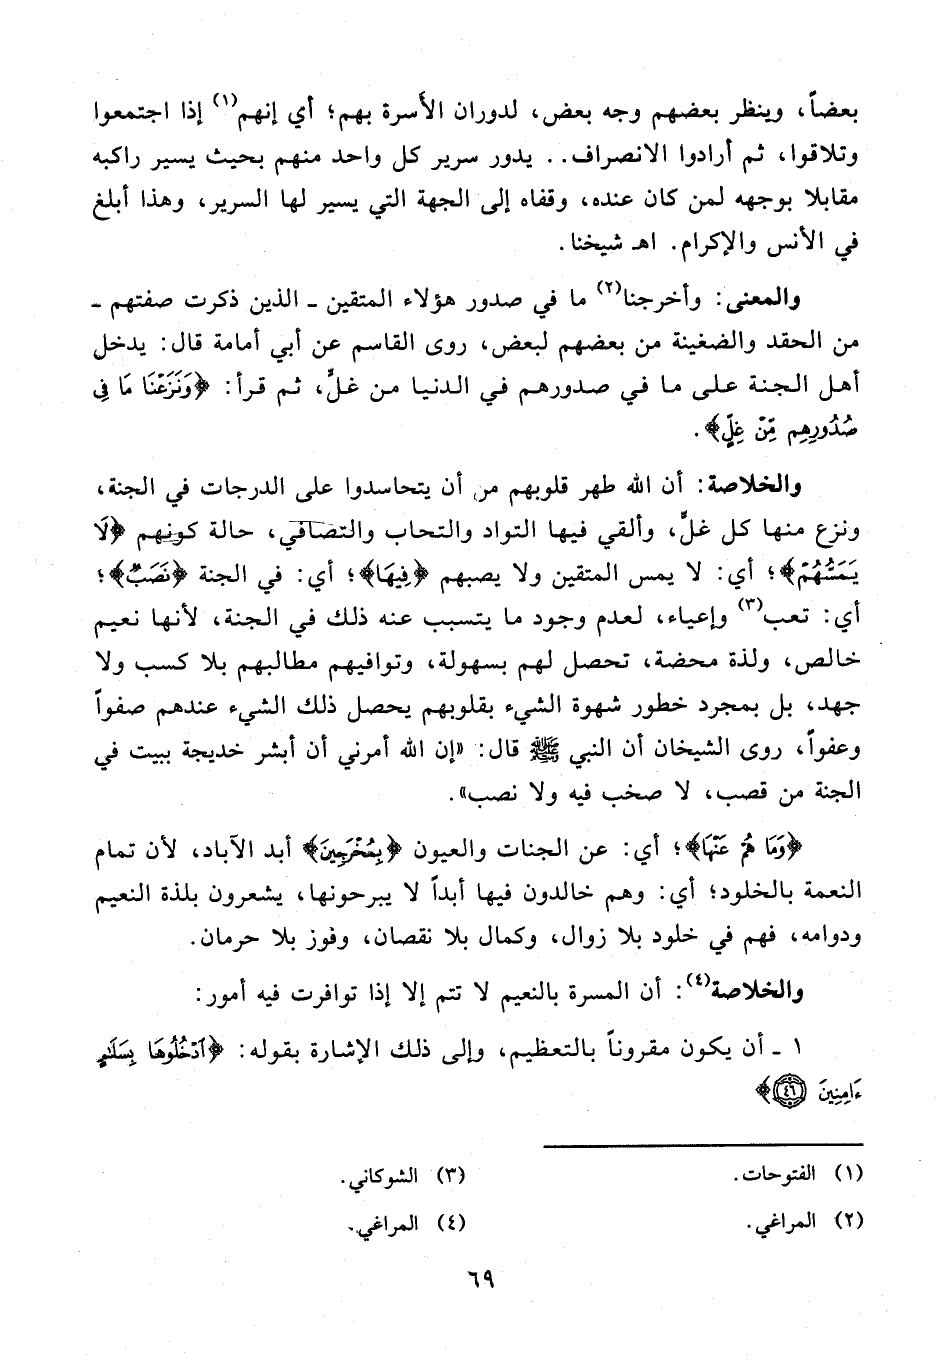 بعضاً، وينظر بعضهم وجه بعض، لدوران الأسرة بهم؛ أي إنهم(١) إذا اجتمعوا
وتلاقوا، ثم أرادوا الانصراف.. يدور سرير كل واحد منهم بحيث يسير راكبه
مقابلا بوجهه لمن كان عنده، وقفاه إلى الجهة التي يسير لها السرير، وهذا أبلغ
في الأنس والإكرام. اهـ شيخنا.
والمعنى: وأخرجنا(٢) ما في صدور هؤلاء المتقين ـ الذين ذكرت صفتهم ـ
من الحقد والضغينة من بعضهم لبعض، روى القاسم عن أبي أمامة قال: يدخل
أهل الجنة على ما في صدورهم في الدنيا من غلٍّ، ثم قرأ: ﴿وَنَزَعْنَا مَا فِى
صُدُورِهِم مِّنْ غِلٍّ﴾.
والخلاصة: أن الله طهر قلوبهم من أن يتحاسدوا على الدرجات في الجنة،
ونزع منها كل غلٍّ، وألقي فيها التواد والتحاب والتصافي، حالة كونهم ﴿لَا
يَمَسُّهُمْ﴾؛ أي: لا يمس المتقين ولا يصبهم ﴿فِيهَا﴾؛ أي: في الجنة ﴿نَصَبٌ﴾؛
أي: تعب(٣) وإعياء، لعدم وجود ما يتسبب عنه ذلك في الجنة، لأنها نعيم
خالص، ولذة محضة، تحصل لهم بسهولة، وتوافيهم مطالبهم بلا كسب ولا
جهد، بل بمجرد خطور شهوة الشيء بقلوبهم يحصل ذلك الشيء عندهم صفواً
وعفواً، روى الشيخان أن النبي ﷺ قال: «إن الله أمرني أن أبشر خديجة ببيت في
الجنة من قصب، لا صخب فيه ولا نصب».
﴿وَمَا هُم عَنْهَا﴾؛ أي: عن الجنات والعيون ﴿بِمُخْرَجِينَ﴾ أبد الآباد، لأن تمام
النعمة بالخلود؛ أي: وهم خالدون فيها أبداً لا يبرحونها، يشعرون بلذة النعيم
ودوامه، فهم في خلود بلا زوال، وكمال بلا نقصان، وفوز بلا حرمان.
والخلاصة(٤): أن المسرة بالنعيم لا تتم إلا إذا توافرت فيه أمور:
١ ـ أن يكون مقروناً بالتعظيم، وإلى ذلك الإشارة بقوله: ﴿ٱدْخُلُوهَا بِسَلَٰمٍ
ءَامِنِينَ ٤٦﴾
(١) الفتوحات.
(٢) المراغي.
(٣) الشوكاني.
(٤) المراغي.
٦٩